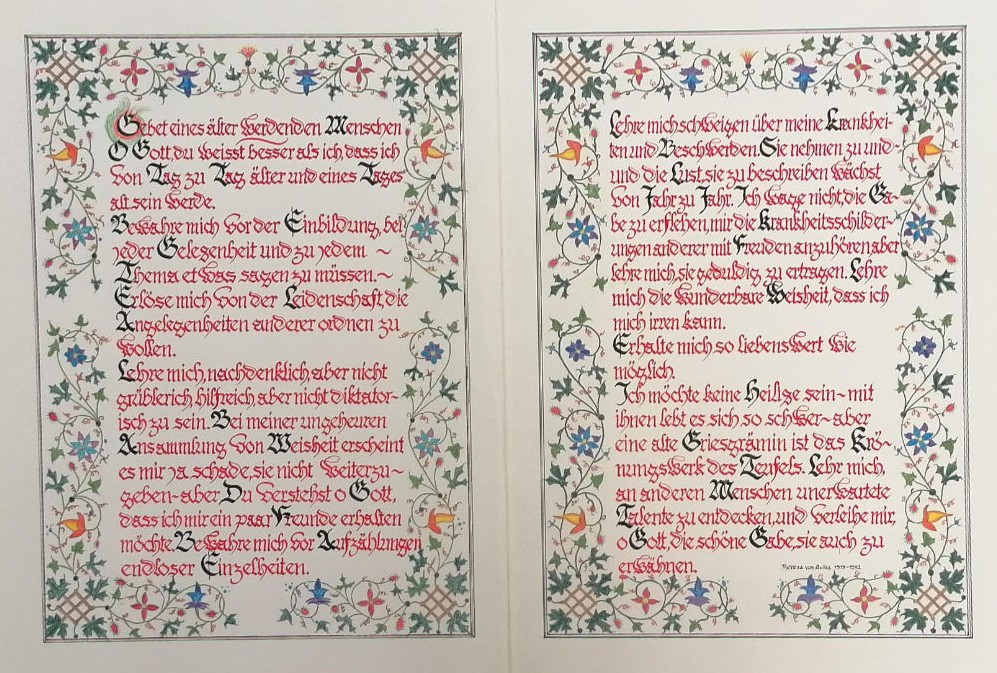 Gebet eines älter werdenden Menschen
O Gott, du weisst besser als ich, dass ich
von Tag zu Tag älter und eines Tages
alt sein werde.
Bewahre mich vor der Einbildung, bei
jeder Gelegenheit und zu jedem ~
Thema etwas sagen zu müssen. ~
Erlöse mich von der Leidenschaft, die
Angelegenheiten anderer ordnen zu
wollen.
Lehre mich, nachdenklich, aber nicht
grüblerich, hilfreich, aber nicht diktator-
isch zu sein. Bei meiner ungeheuren
Ansammlung von Weisheit erscheint
es mir ja schade, sie nicht weiterzu~
geben- aber Du verstehst o Gott,
dass ich mir ein paar Freunde erhalten
möchte. Bewahre mich vor Aufzählungen
endloser Einzelheiten.
Lehre mich schweigen über meine Krankhei-
ten und Beschwerden. Sie nehmen zu und-
und die Lust, sie zu beschreiben wächst
von Jahr zu Jahr. Ich wage nicht, die Ga-
be zu erflehen, mir die Krankheitsschilder-
ungen anderer mit Freuden anzuhören aber
lehre mich, sie geduldig zu ertragen. Lehre
mich die wunderbare Weisheit, dass ich
mich irren kann.
Erhalte mich so liebenswert wie
möglich.
Ich möchte keine Heilige sein~ mit
ihnen lebt es sich so schwer~ aber
eine alte Griesgrämin ist das Krö~
nungswerk des Teufels. Lehr mich,
an anderen Menschen unerwartete
Talente zu entdecken, und verleihe mir,
o Gott, die schöne Gabe, sie auch zu
erwähnen.
Theresa von Avila 1515-1582